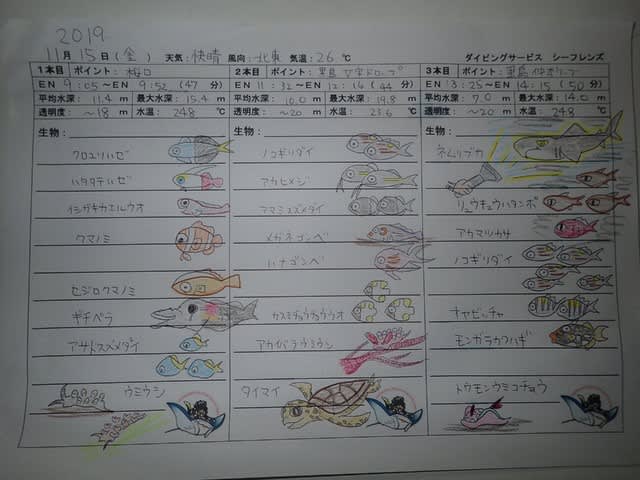 2019
11月15日(金) 天気:快晴 風向:北東 気温:26℃ ダイビングサービス シーフレンズ
1本目 ポイント:
EN 9:05～EN 9:52 (47 分)
平均水深: 11.4 m 最大水深: 15.4 m
透明度: ～18 m 水温: 24.8 ℃
生物:
クロユリハゼ
ハタタテハゼ
イシガキカエルウオ
クマノミ
セジロクマノミ
ギチベラ
アサドスズメダイ
ウミウシ
2本目 ポイント: 黒島
EN 11:32～EN 12:16 (44 分)
平均水深: 10.0 m 最大水深: 19.8 m
透明度: ～20 m 水温: 23.6 ℃
生物:
ノコギリダイ
アカヒメジ
アマミスズメダイ
メガネゴンベ
ハナゴンベ
カスミチョウチョウウオ
アカイバラウミウシ
タイマイ
3本目 ポイント: 黒島
EN 13:25～EN 14:15 (50 分)
平均水深: 7.0 m 最大水深: 14.0 m
透明度: ～20 m 水温: 24.8 ℃
生物:
ネムリブカ
リュウキュウハタンポ
アカマツカサ
ノコギリダイ
オヤビッチャ
モンガラカワハギ
トウモンウミコチョウ